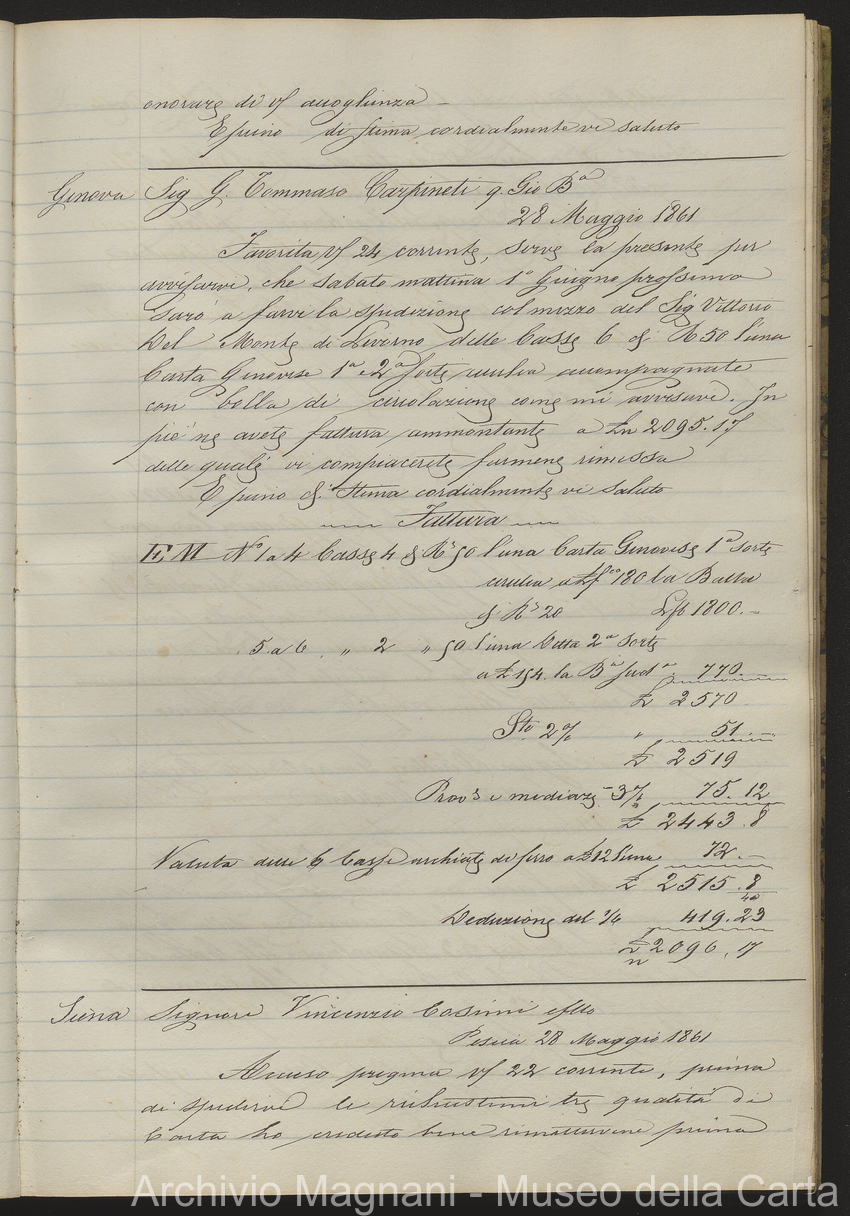 onorare di V/ accoglienza –
E pieno di stima cordialmente vi saluto
Genova Sig G. Tommaso Carpineti q. Gio Bª
28 Maggio 1861
Favorita V/ 24 corrente, serve la presente per
avvisarvi, che sabato mattina 1° Giugno prossimo
sarò a farvi la spedizione col mezzo del Sig Vittorio
Del Monte di Livorno delle Casse 6 di R 50 l'una
Carta Genovese 1ª e 2ª sorte cerulea accompagnate
con bolla di circolazione come mi avvisave. In
pie' ne avete fattura ammontante a Ln 2095.17
delle quale vi compiacerete farmene rimessa
E pieno di stima cordialmente vi saluto
Fattura
EM Nº 1 a 4 Casse 4 di Rˢ 50 l'una Carta Genovese 1ª sorte
cerulea a 180 la Balla
di Rˢ 20 1800.–
5 a 6 " 2 " 50 l'una Detta 2ª sorte
a £ 154 la Bª sudª 770.
£ 2570
Sto 2% " 51.–
£ 2519
Provˢ e mediazˢ 3% " 75.12
£ 2443.8
Valuta delle 6 Casse cerchiate di ferro a £ 12 l'una 72.–
£ 2515.8
Deduzione del 1/6 419.23
£n 2096.17
Siena Signore Vincenzio Cosimi
Pescia 28 Maggio 1861
Accuso pregma V/ 22 corrente, prima
di spedirvi le richiestemi tre qualità di
Carta ho creduto bene rimettervene prima
Archivio Magnani - Museo della Carta